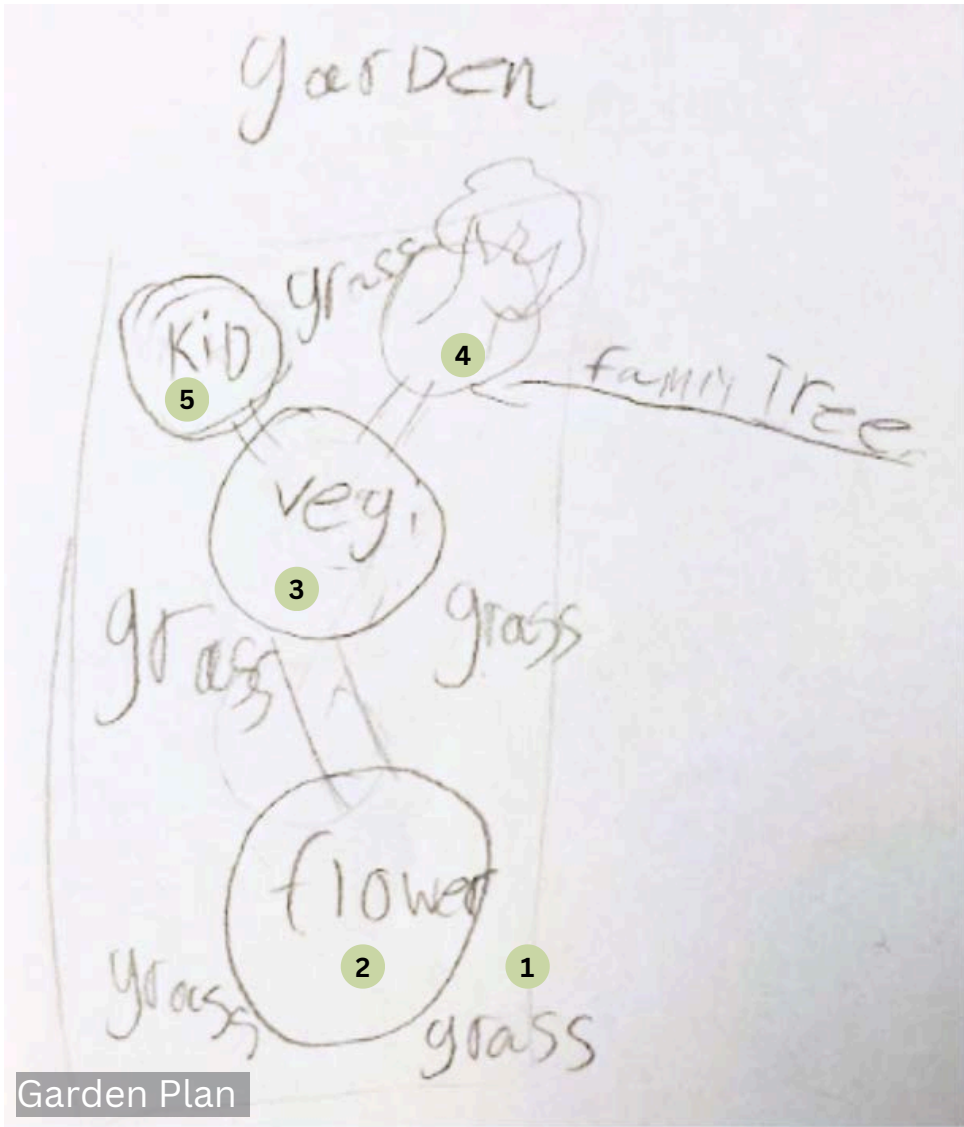 garDen
grass
KiD
5
4
famliy Tree
vegi
3
grass
grass
flower
2
1
grass
grass
Garden Plan